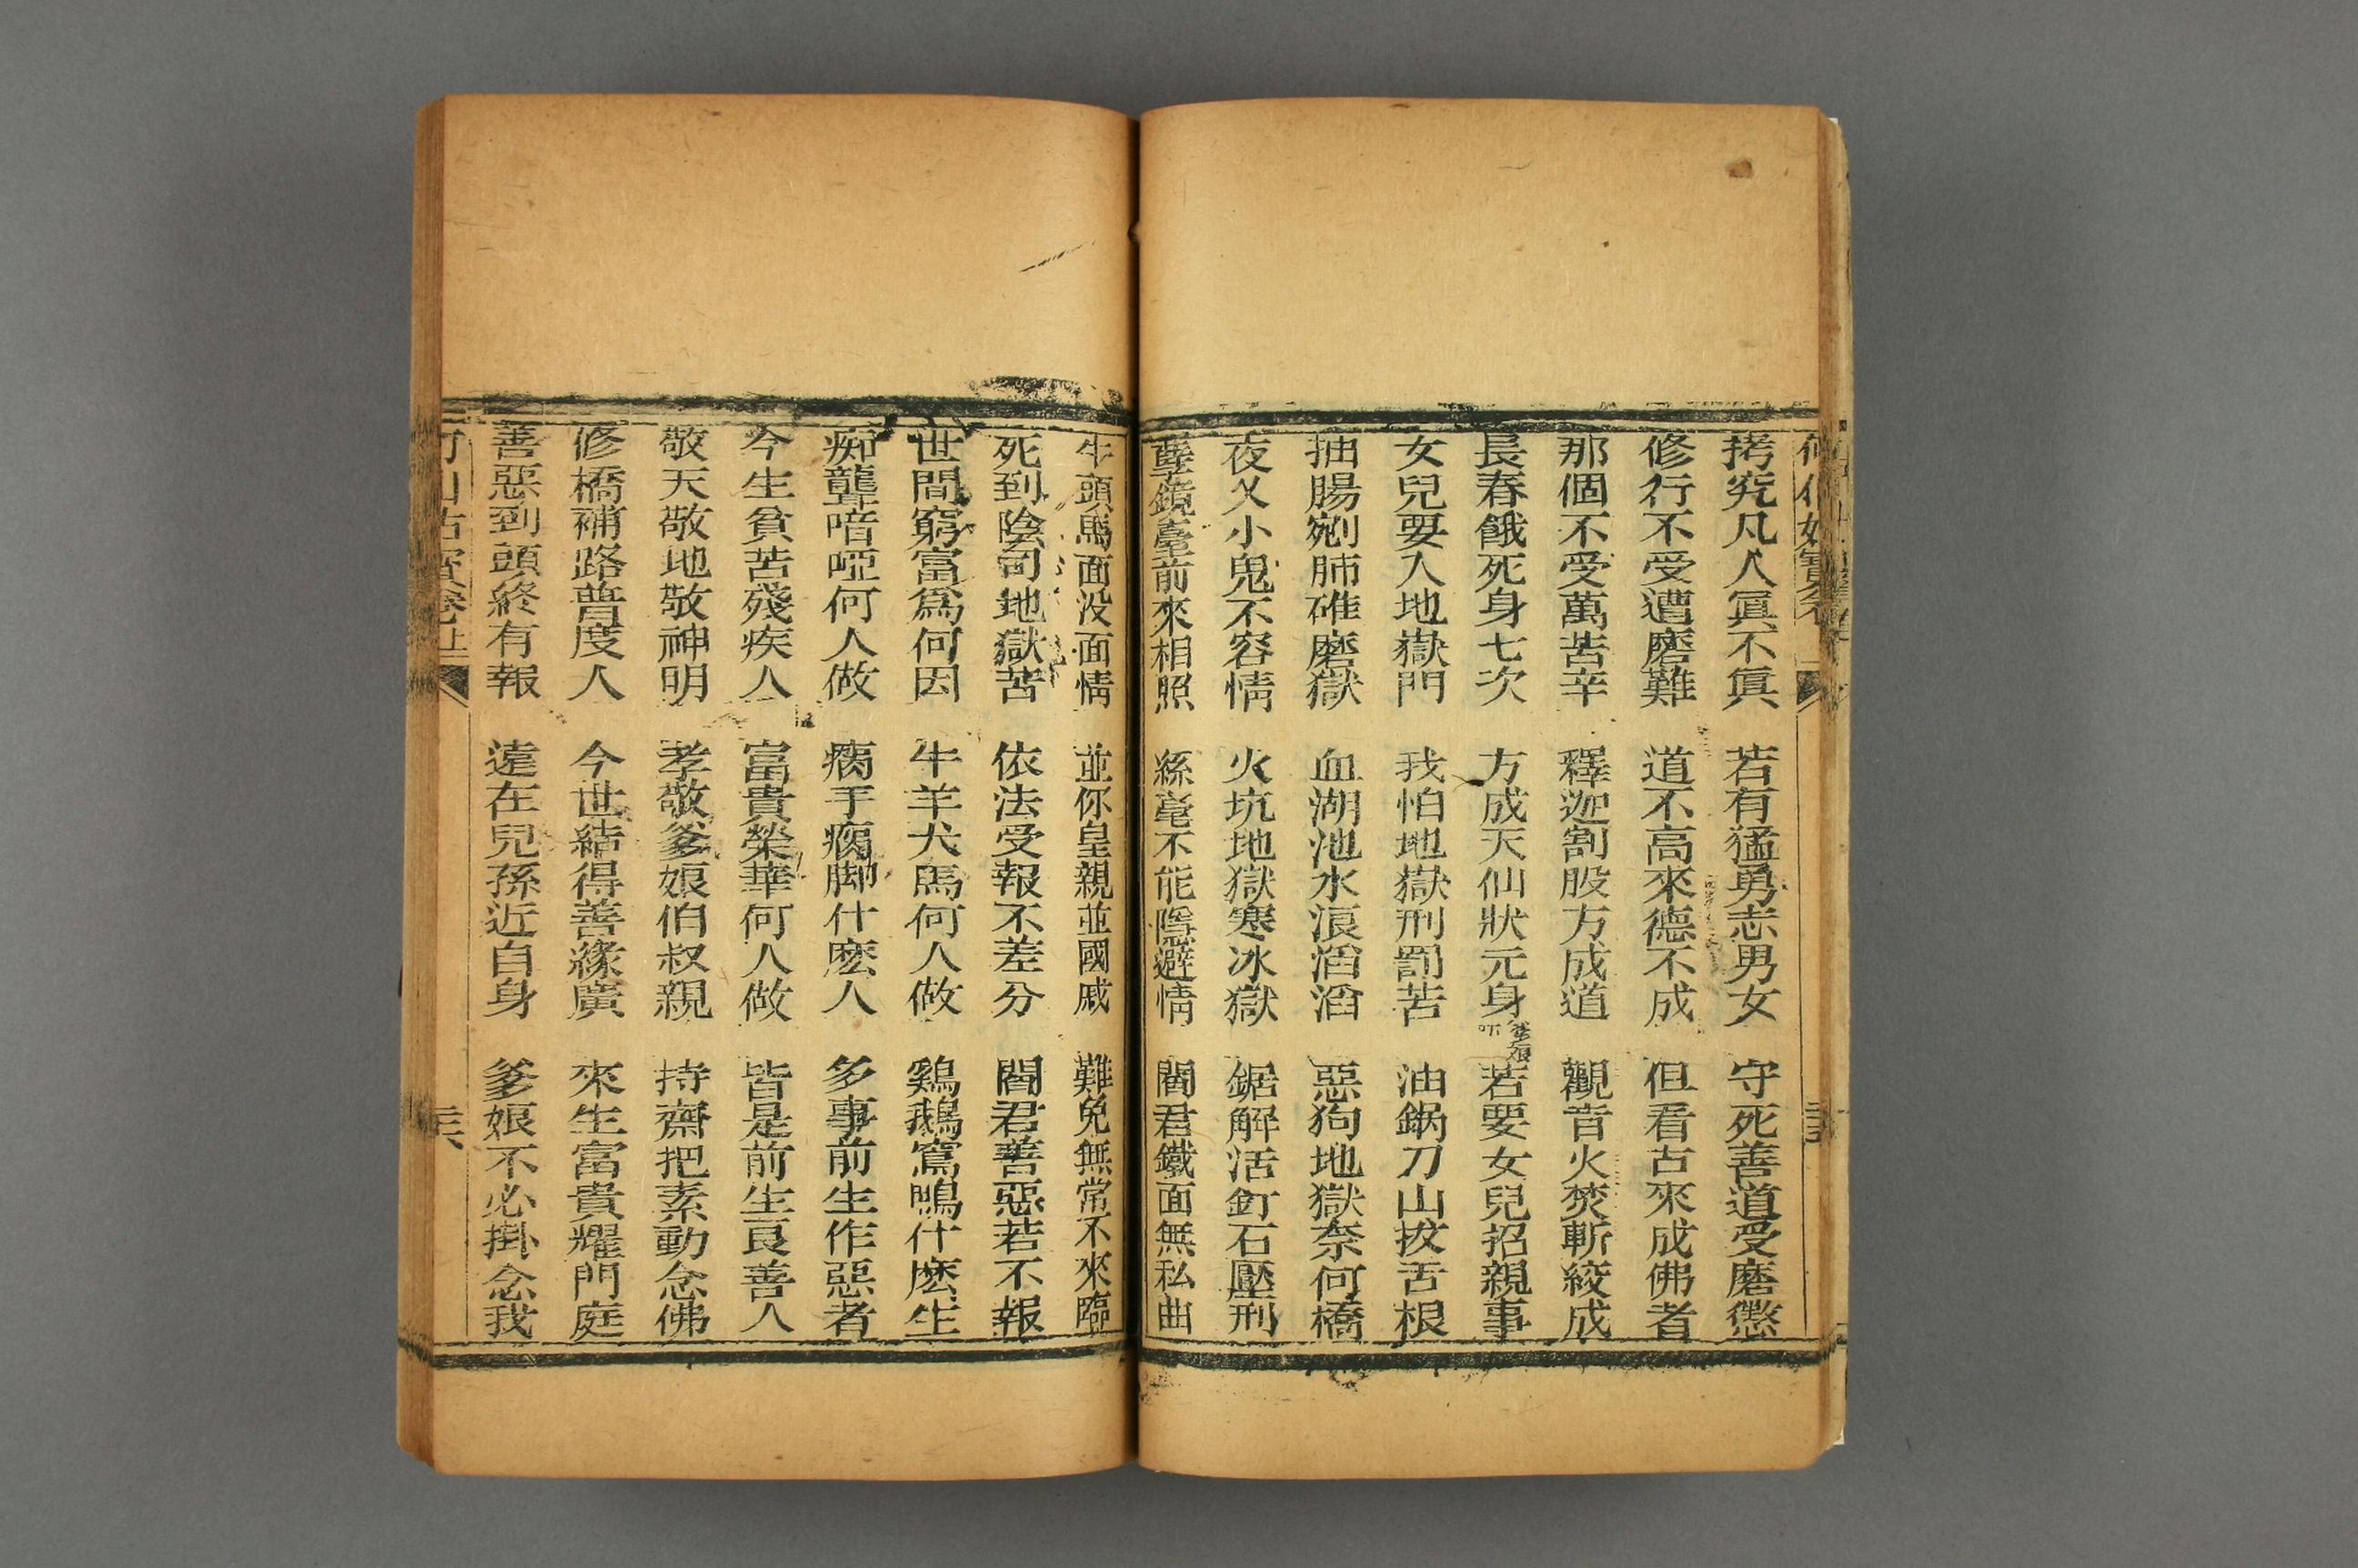 何仙姑寶卷
拷究凡人眞不眞 若有猛勇志男女 守死善道受磨懲
修行不受遭磨難 道不高來德不成 但看古來成佛者
那個不受萬苦辛 釋迦割股方成道 觀音火焚斬絞成
長春餓死身七次 方成天仙狀元身 若要女兒招親事
女兒要入地嶽門 我怕地嶽刑罰苦 油鍋刀山拔舌根
抽腸剜肺碓磨獄 血湖池水浪滔滔 惡狗地獄奈何橋
夜乂小鬼不容情 火坑地獄寒冰獄 鋸解活釘石壓刑
孽鏡臺前來相照 絲毫不能隱避情 閻君鐵面無私曲
牛頭馬面没面情 並你皇親並國戚 難免無常不來臨
死到陰司地獄苦 依法受報不差分 閻君善惡若不報
世間窮富爲何因 牛羊犬馬何人做 鷄鵝窩鴨什麽生
痴聾喑啞何人做 瘸手瘸脚什麽人 多事前生作惡者
今生貧苦殘疾人 富貴榮華何人做 皆是前生良善人
敬天敬地敬神明 孝敬爹娘伯叔親 持齋把素動念佛
修橋補路普度人 今世結得善緣廣 來生富貴耀門庭
善惡到頭終有報 遠在兒孫近自身 爹娘不必掛念我